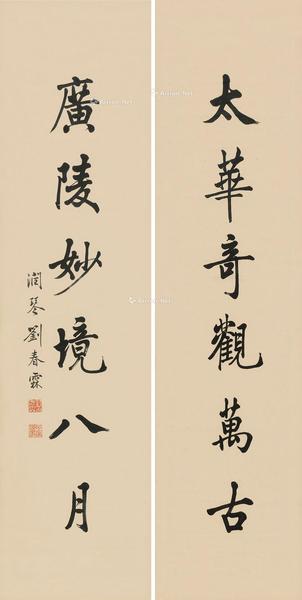 太華奇觀萬古
廣陵妙境八月
潤琴劉春霖